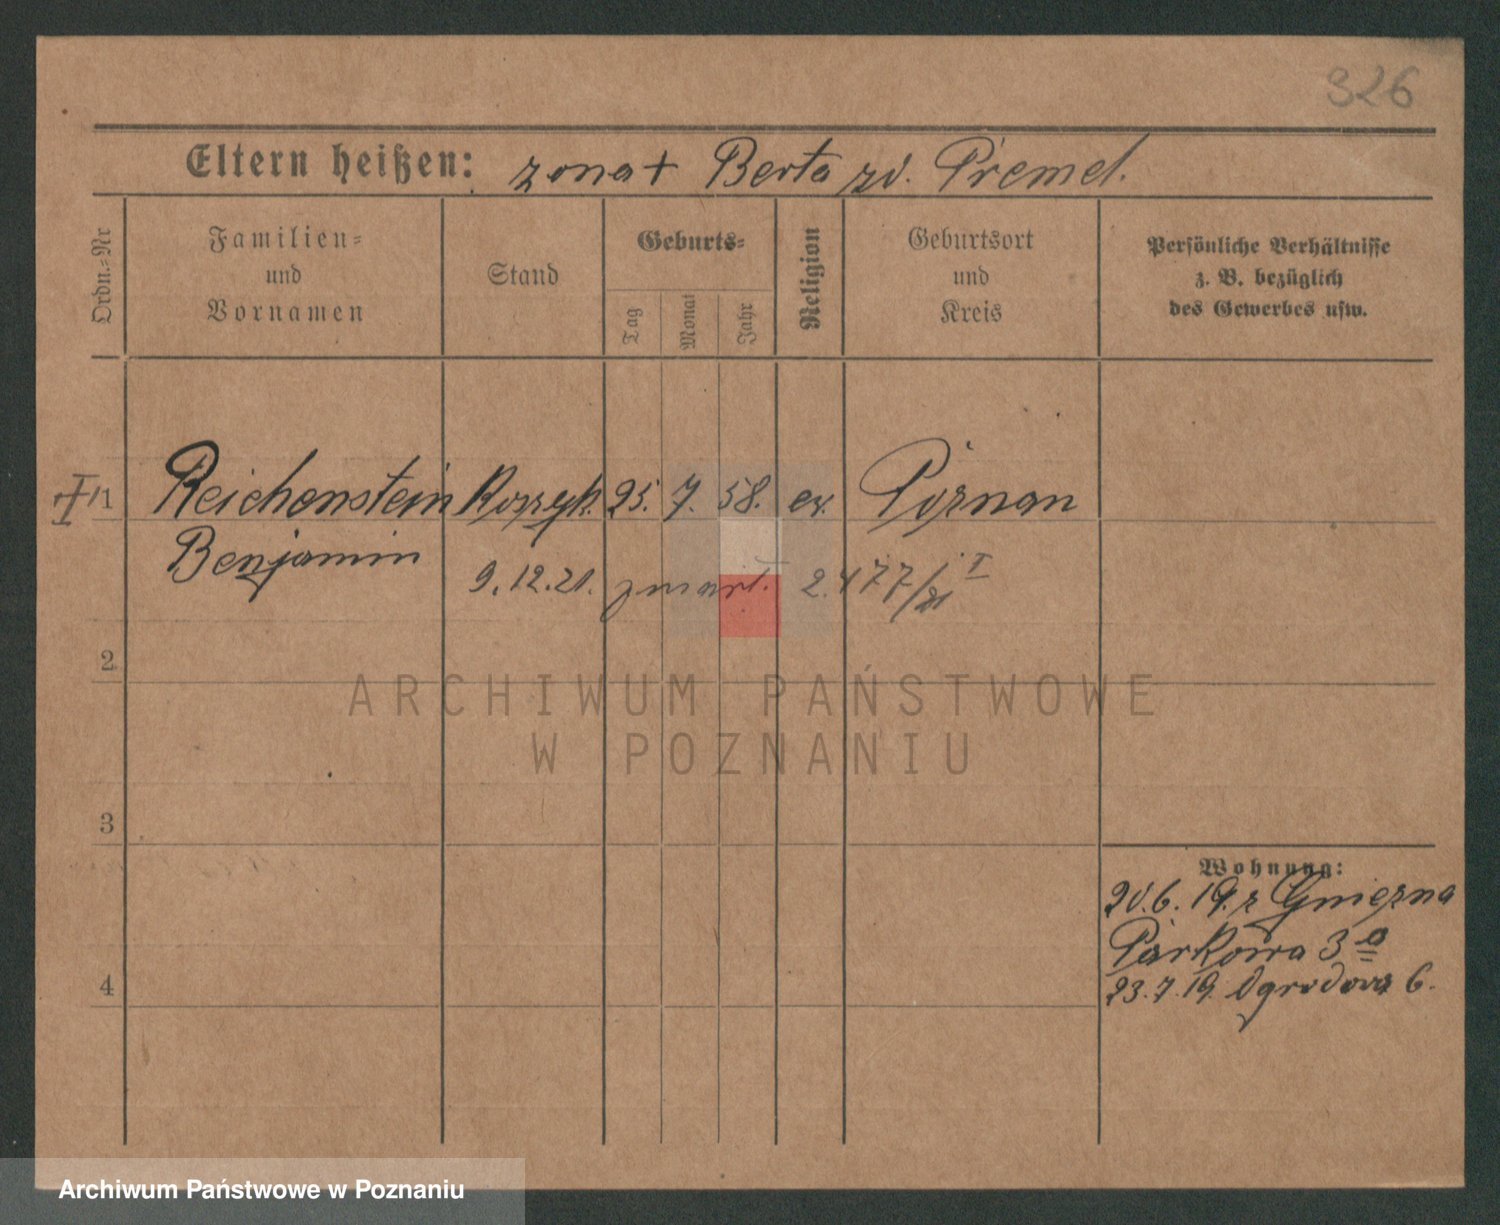 326
Eltern heißen: żona + Berta zd. Premel.
Ordn.-Nr
Familien-
und
Vornamen
Stand
Geburts-
Tag
Monat
Jahr
Religion
Geburtsort
und
Kreis
Persönliche Verhältnisse
z. B. bezüglich
des Gewerbes usw.
1 Reichenstein 25. 7. 58. ew. Poznan
Benjamin
9.12.21. zmarł. 2477/21 I
2
ARCHIWUM PAŃSTWOWE
W POZNANIU
3
Wohnung:
20.6.19. z Gniezna
Parkowa 3
4
23.7.19. Ogrodowa 6.
Archiwum Państwowe w Poznaniu